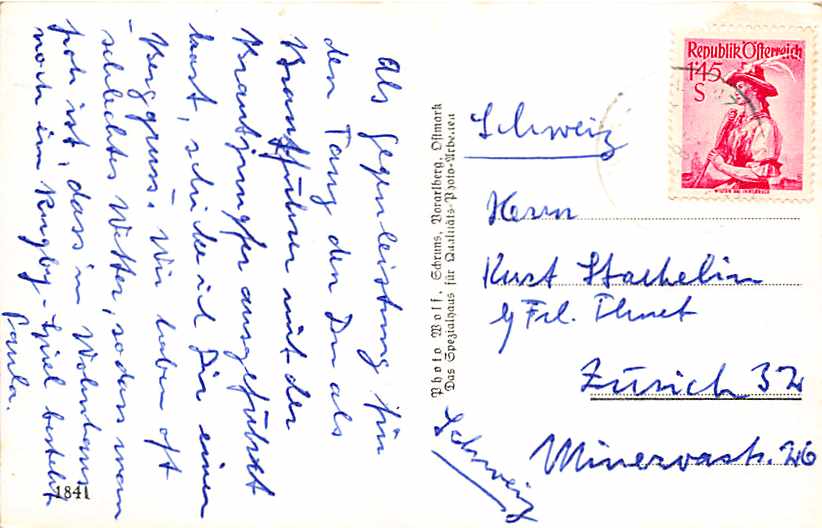 Als Gegenleistung für
den Tanz den Du als
Brautführer mit der
Brautjungfer ausgeführt
hast, schicke ich Dir einen
Berggruss. Wir haben oft
schlechtes Wetter, sodass man
froh ist, dass im Wohnhaus
noch im Rugby-Spiel besteht
Paula.
1841
Photo Wolf, Schruns, Vorarlberg, Ostmark
Das Spezialhaus für Qualitäts-Photo-Arbeiten
Republik Österreich
1'45
S
Schweiz
Herrn
Kurt Staehelin
Frl. Thmet
Zürich 32
Minervastr. 26
Schweiz